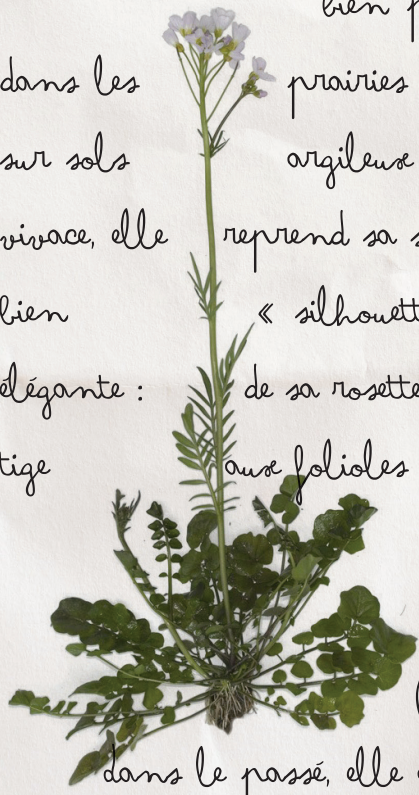 bien
dans les prairies
sur sols argileux
vivace, elle reprend sa
bien « silhouett
élégante : de sa rosette
tige aux folioles
dans le passé, elle